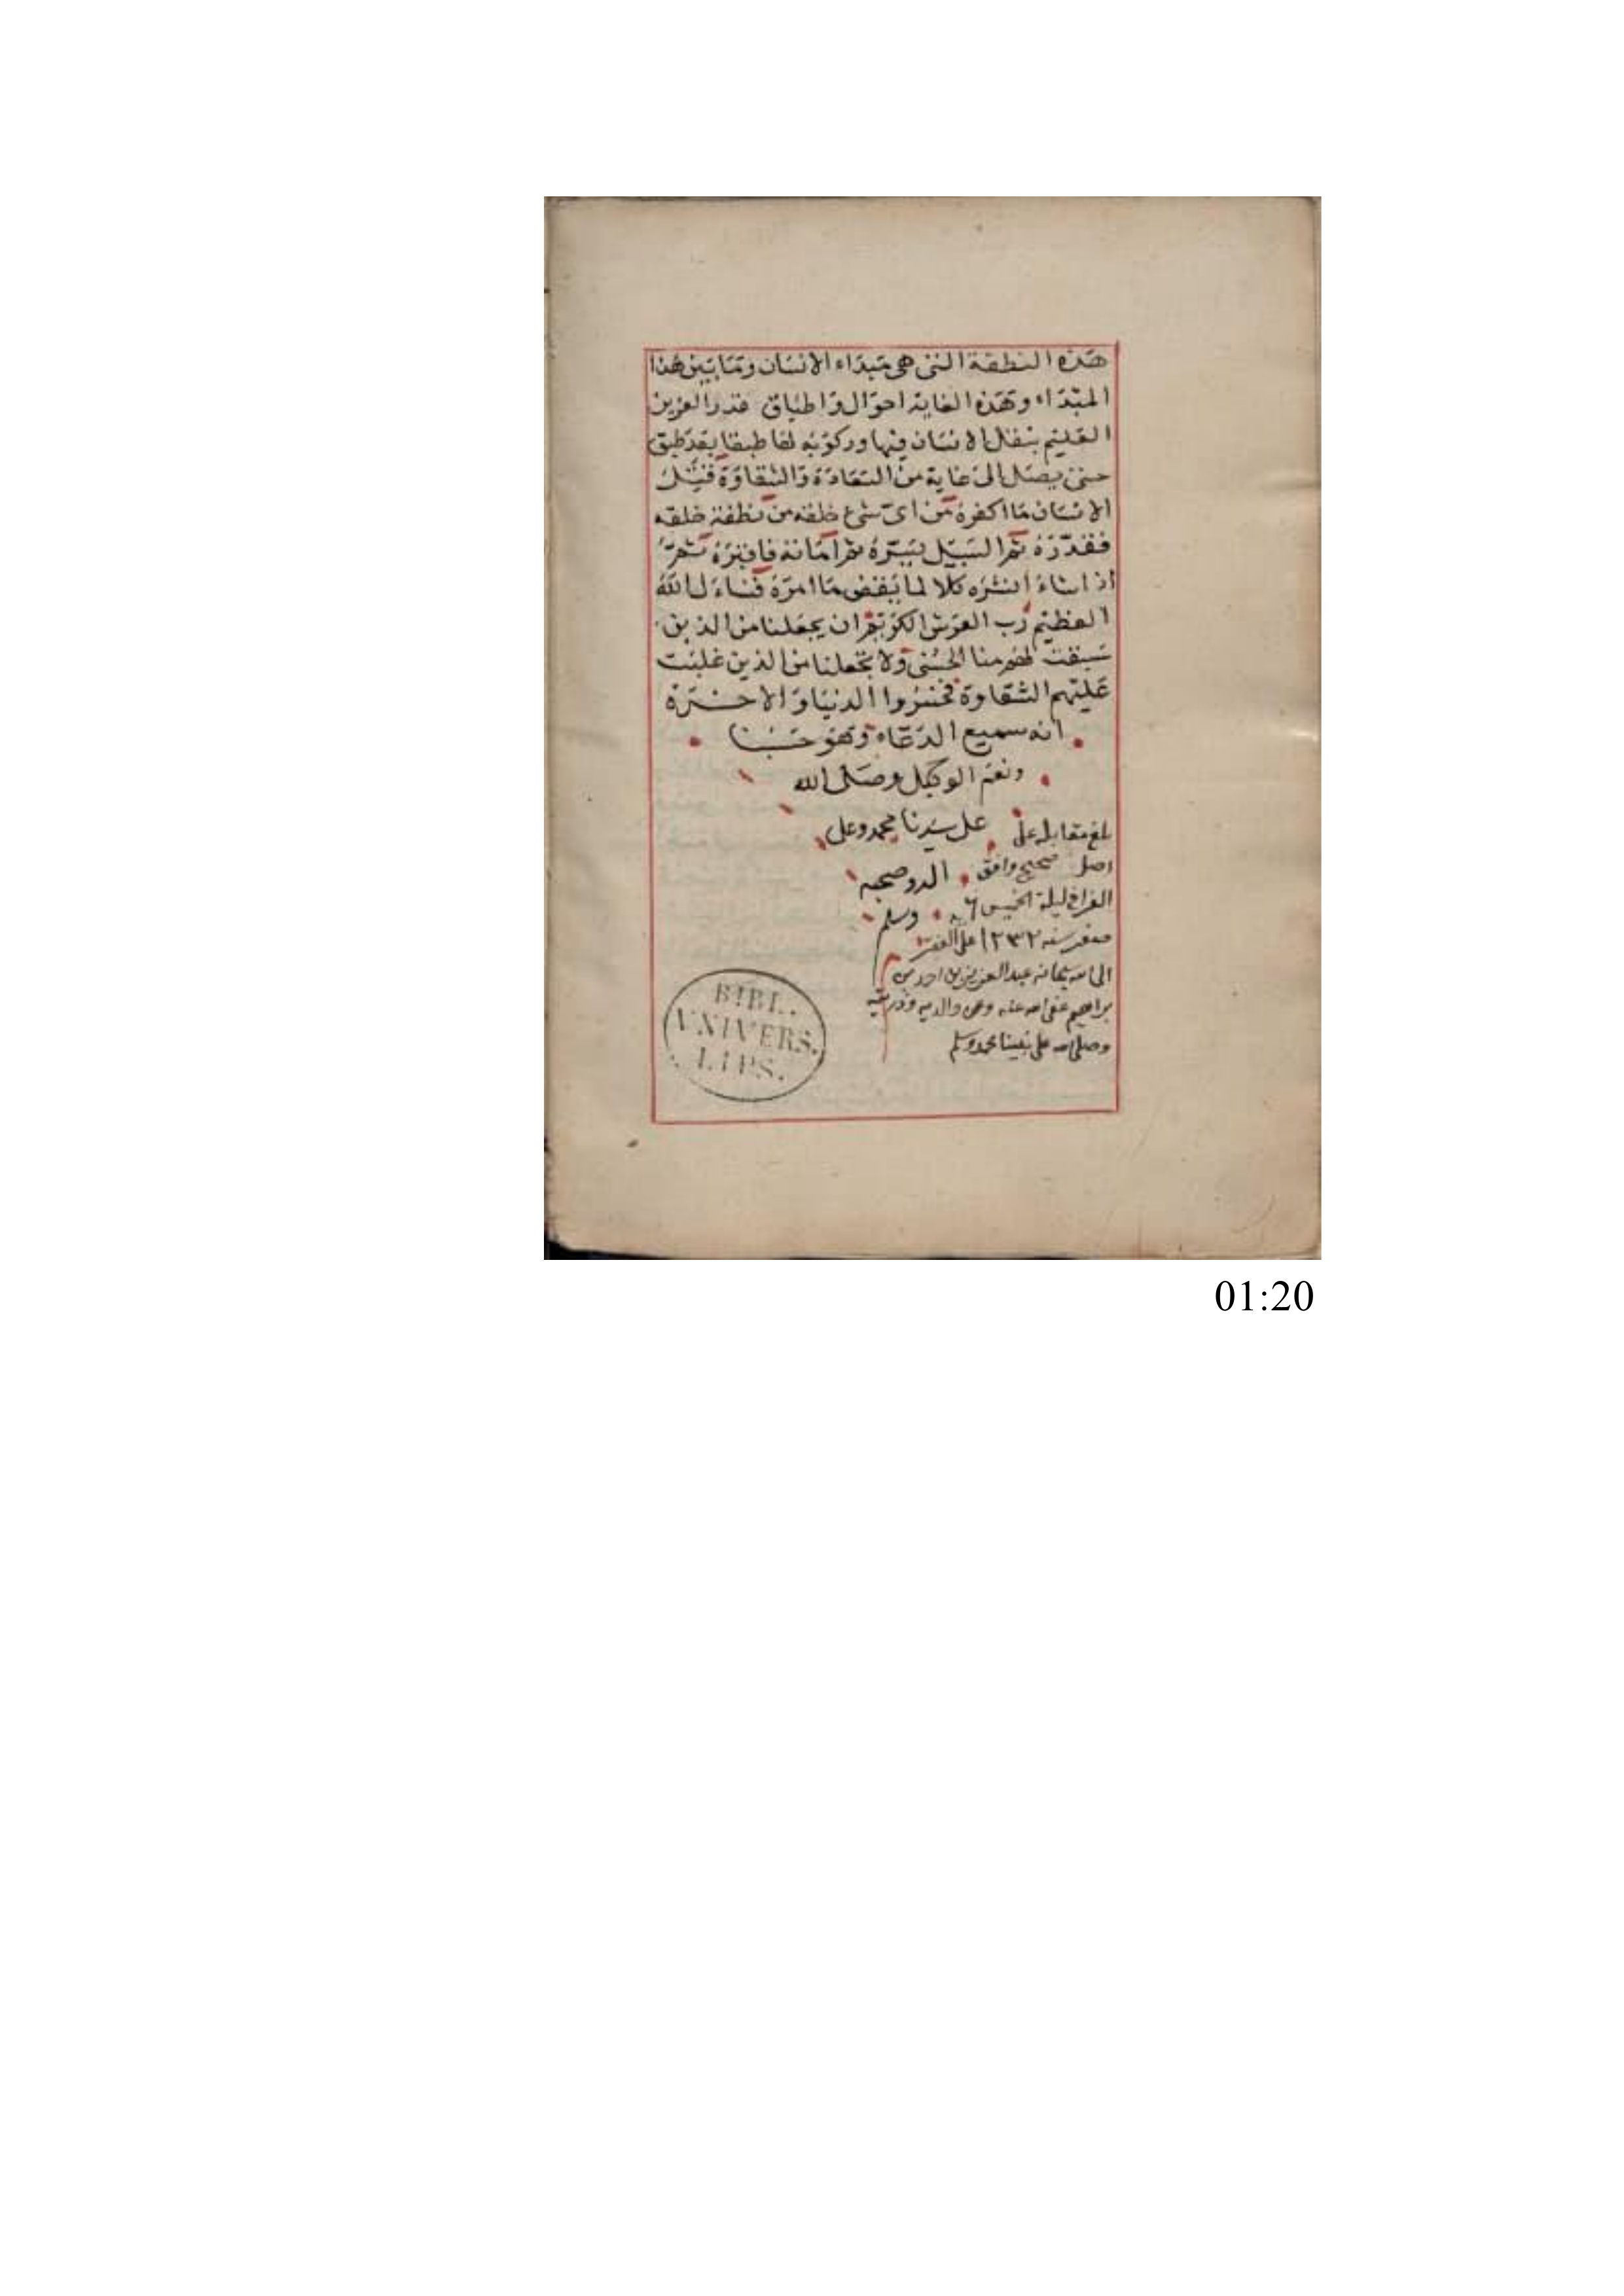 هذه النطفة التى هى مبداء الانسان وما بين هذا
المبداء وهذه الغاية احوال واطباق قدر العزيز
العليم بنقل الانسان فيها وركوبه لها طبقا بعد طبق
حتى يصل الى غاية من السعادة والشقاوة قتل
الانسان ما اكفره من اى شئ خلقه من نطفة خلقه
فقدره ثم السبيل يسره ثم اماته فاقبره ثم
اذا شاء انشره كلا لما يقض ما امره فنساءل الله
العظيم رب العرش الكريم ان يجعلنا من الذين
سبقت لهم منا الحسنى ولا تجعلنا من الذين غلبت
عليهم الشقاوة فخسروا الدنيا والاخرة
انه سميع الدعاء وهو حسبنا
ونعم الوكيل وصلى الله
على سيدنا محمد وعلى
اله وصحبه
وسلم
بلغ مقابله على
اصل صحيح وافق
الفراغ ليلة الخميس ٦
صفر سنه ١٢٣٢ على الفقير
الى الله سبحانه عبد العزيز بن احمد بن
براهيم عفى الله عنه وعن والديه وذريته
وصلى الله على نبينا محمد وسلم
BIBL.
VNIVERS.
LIPS.
01:20